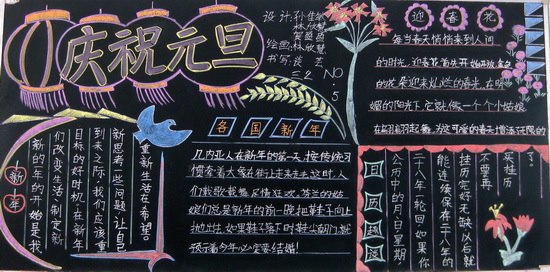 庆祝元旦
设计:孙佳
林欣
贺盛
绘画:林欣慧
书写:
三2 NO.5
迎春花
每当春天悄悄来到人间
的时光,迎春花首先开始开放金色
的花朵迎来灿烂的春光,在明
媚的阳光下,它就像一个个小姑娘
在翩翩起舞,为这可爱的春天增添无限的
各国新年
几内亚人在新年的第一天,按传统习
惯牵着大象在街上走来走去,这时,人
们载歌载舞,尽情狂欢。芬兰的姑
娘们总是新年的前一晚把鞋子向上
抛出,如果鞋子落下时鞋尖朝门,就
预示着今年必定要结婚!
新年
新的一年的开始是我
们改变生活、制定新
目标的好时机,在新年
到来之际,我们应该重
新思考一些问题,让自己
重新生活在希望。
日历趣闻
公历中的月、日、星期,
二十八年一轮回,如果你
能连续保存二十八年的
挂历,完好无缺,以后就
不需再
买挂历
了。